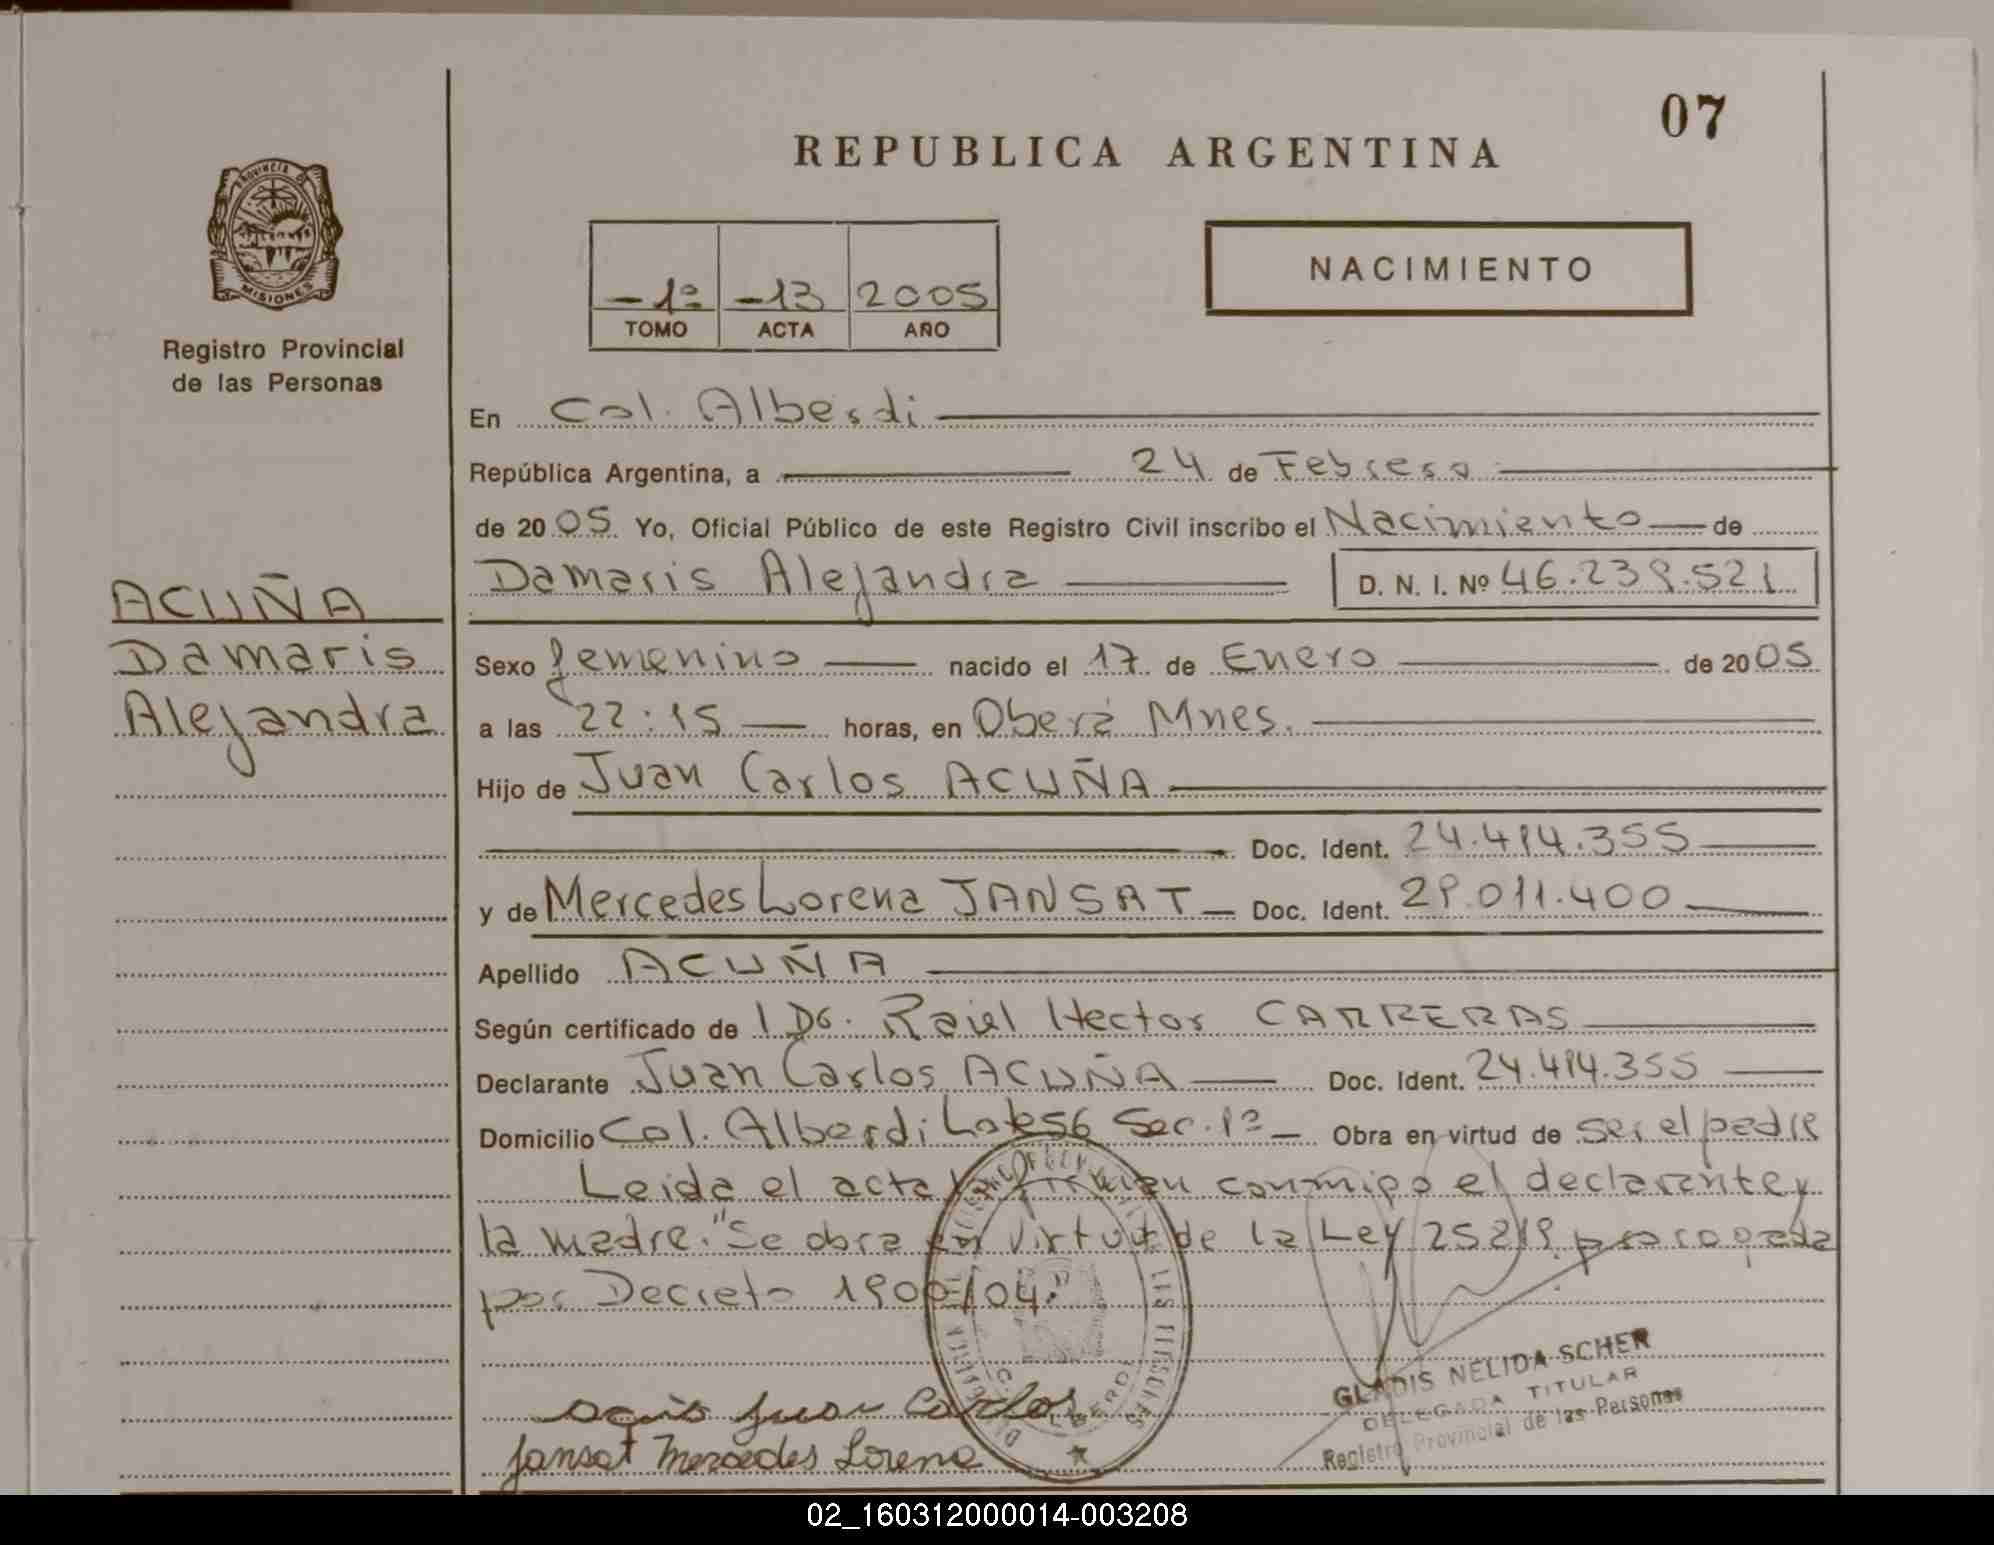 07
REPUBLICA ARGENTINA
PROVINCIA DE
MISIONES
Registro Provincial
de las Personas
-1º -13 2005
TOMO ACTA AÑO
NACIMIENTO
En Col. Alberdi
República Argentina, a 24 de Febrero
de 2005 Yo, Oficial Público de este Registro Civil inscribo el Nacimiento de
Damaris Alejandra D. N. I. Nº 46.239.521
ACUÑA
Damaris
Alejandra
Sexo femenino nacido el 17 de Enero de 2005
a las 22:15 horas, en Oberá Mnes.
Hijo de Juan Carlos ACUÑA
Doc. Ident. 24.414.355
y de Mercedes Lorena JANSAT Doc. Ident. 29.011.400
Apellido ACUÑA
Según certificado de Dr. Raúl Hector CARRERAS
Declarante Juan Carlos ACUÑA Doc. Ident. 24.414.355
Domicilio Col. Alberdi Lote 56 Sec. 1ª Obra en virtud de ser el padre
Leida el acta firman conmigo el declarante y
la madre. "Se obra en virtud de la Ley 25819 prorogada
por Decreto 1900/04."
Acuña Juan Carlos
Jansat Mercedes Lorena
GLADIS NELIDA SCHER
DELEGADA TITULAR
Registro Provincial de las Personas
02_160312000014-003208